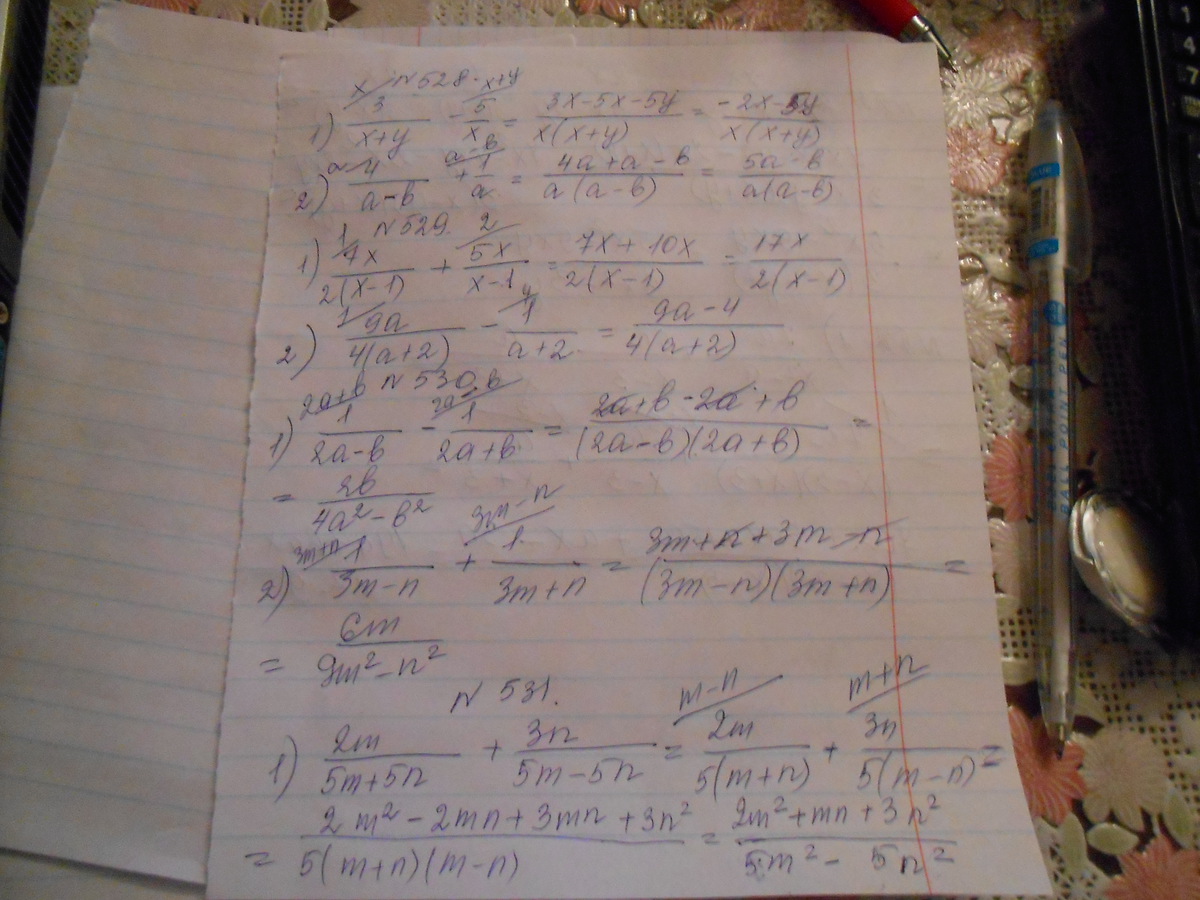 N 528.
1) x/ 3/(x+y) - x+y/ 5/x = (3x-5x-5y)/(x(x+y)) = (-2x-5y)/(x(x+y))
2) a/ 4/(a-b) + a-b/ 1/a = (4a+a-b)/(a(a-b)) = (5a-b)/(a(a-b))
N 529.
1) 1/ 7x/(2(x-1)) + 2/ 5x/(x-1) = (7x+10x)/(2(x-1)) = 17x/(2(x-1))
2) 1/ 9a/(4(a+2)) - 4/ 1/(a+2) = (9a-4)/(4(a+2))
N 530
1) 2a+b/ 1/(2a-b) - 2a-b/ 1/(2a+b) = (2a+b-2a+b)/((2a-b)(2a+b)) =
= 2b/(4a²-b²)
2) 3m+n/ 1/(3m-n) + 3m-n/ 1/(3m+n) = (3m+n+3m-n)/((3m-n)(3m+n)) =
= 6m/(9m²-n²)
N 531.
1) 2m/(5m+5n) + 3n/(5m-5n) = m-n/ 2m/(5(m+n)) + m+n/ 3n/(5(m-n)) =
= (2m²-2mn+3mn+3n²)/(5(m+n)(m-n)) = (2m²+mn+3n²)/(5m²-5n²)
BALL POINT PEN